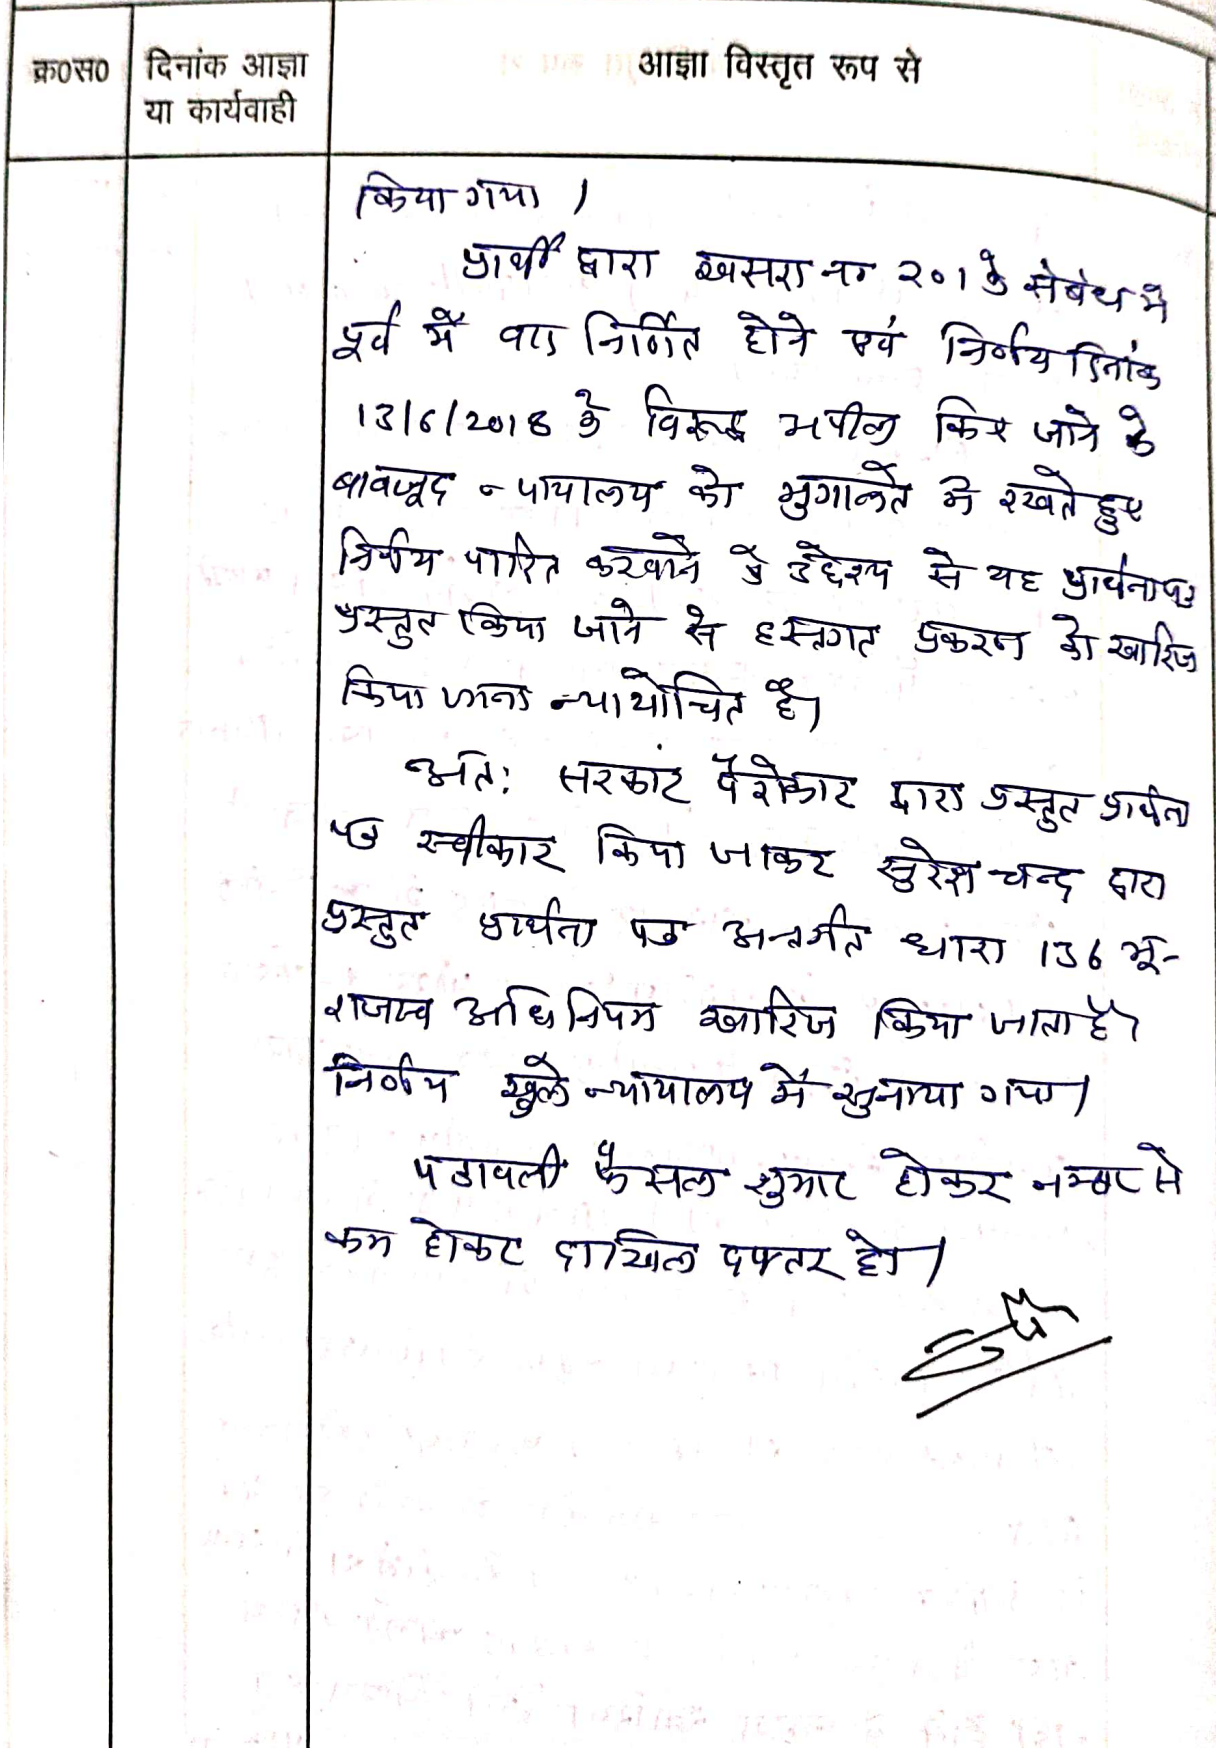 क्र०स० दिनांक आज्ञा या कार्यवाही आज्ञा विस्तृत रूप से
किया गया ।
प्रार्थी द्वारा खसरा नं २०१ के संबंध मे
पूर्व में वाद निर्णित होने एवं निर्णय दिनांक
13/6/2018 के विरूद्ध अपील किए जाने के
बावजूद न्यायालय को मुगालते मे रखते हुए
निर्णय पारित करवाने के उद्देश्य से यह प्रार्थनापत्र
प्रस्तुत किया जाने से हस्तगत प्रकरण को खारिज
किया जाना न्यायोचित है।
अतः सरकार पैरोकार द्वारा प्रस्तुत प्रार्थना
पत्र स्वीकार किया जाकर सुरेश चन्द्र द्वारा
प्रस्तुत प्रार्थना पत्र अन्तर्गत धारा 136 भू-
राजस्व अधिनियम खारिज किया जाता है।
निर्णय खुले न्यायालय में सुनाया गया।
पत्रावली फैसल शुमार होकर नम्बर से
कम होकर दाखिल दफ्तर हो।